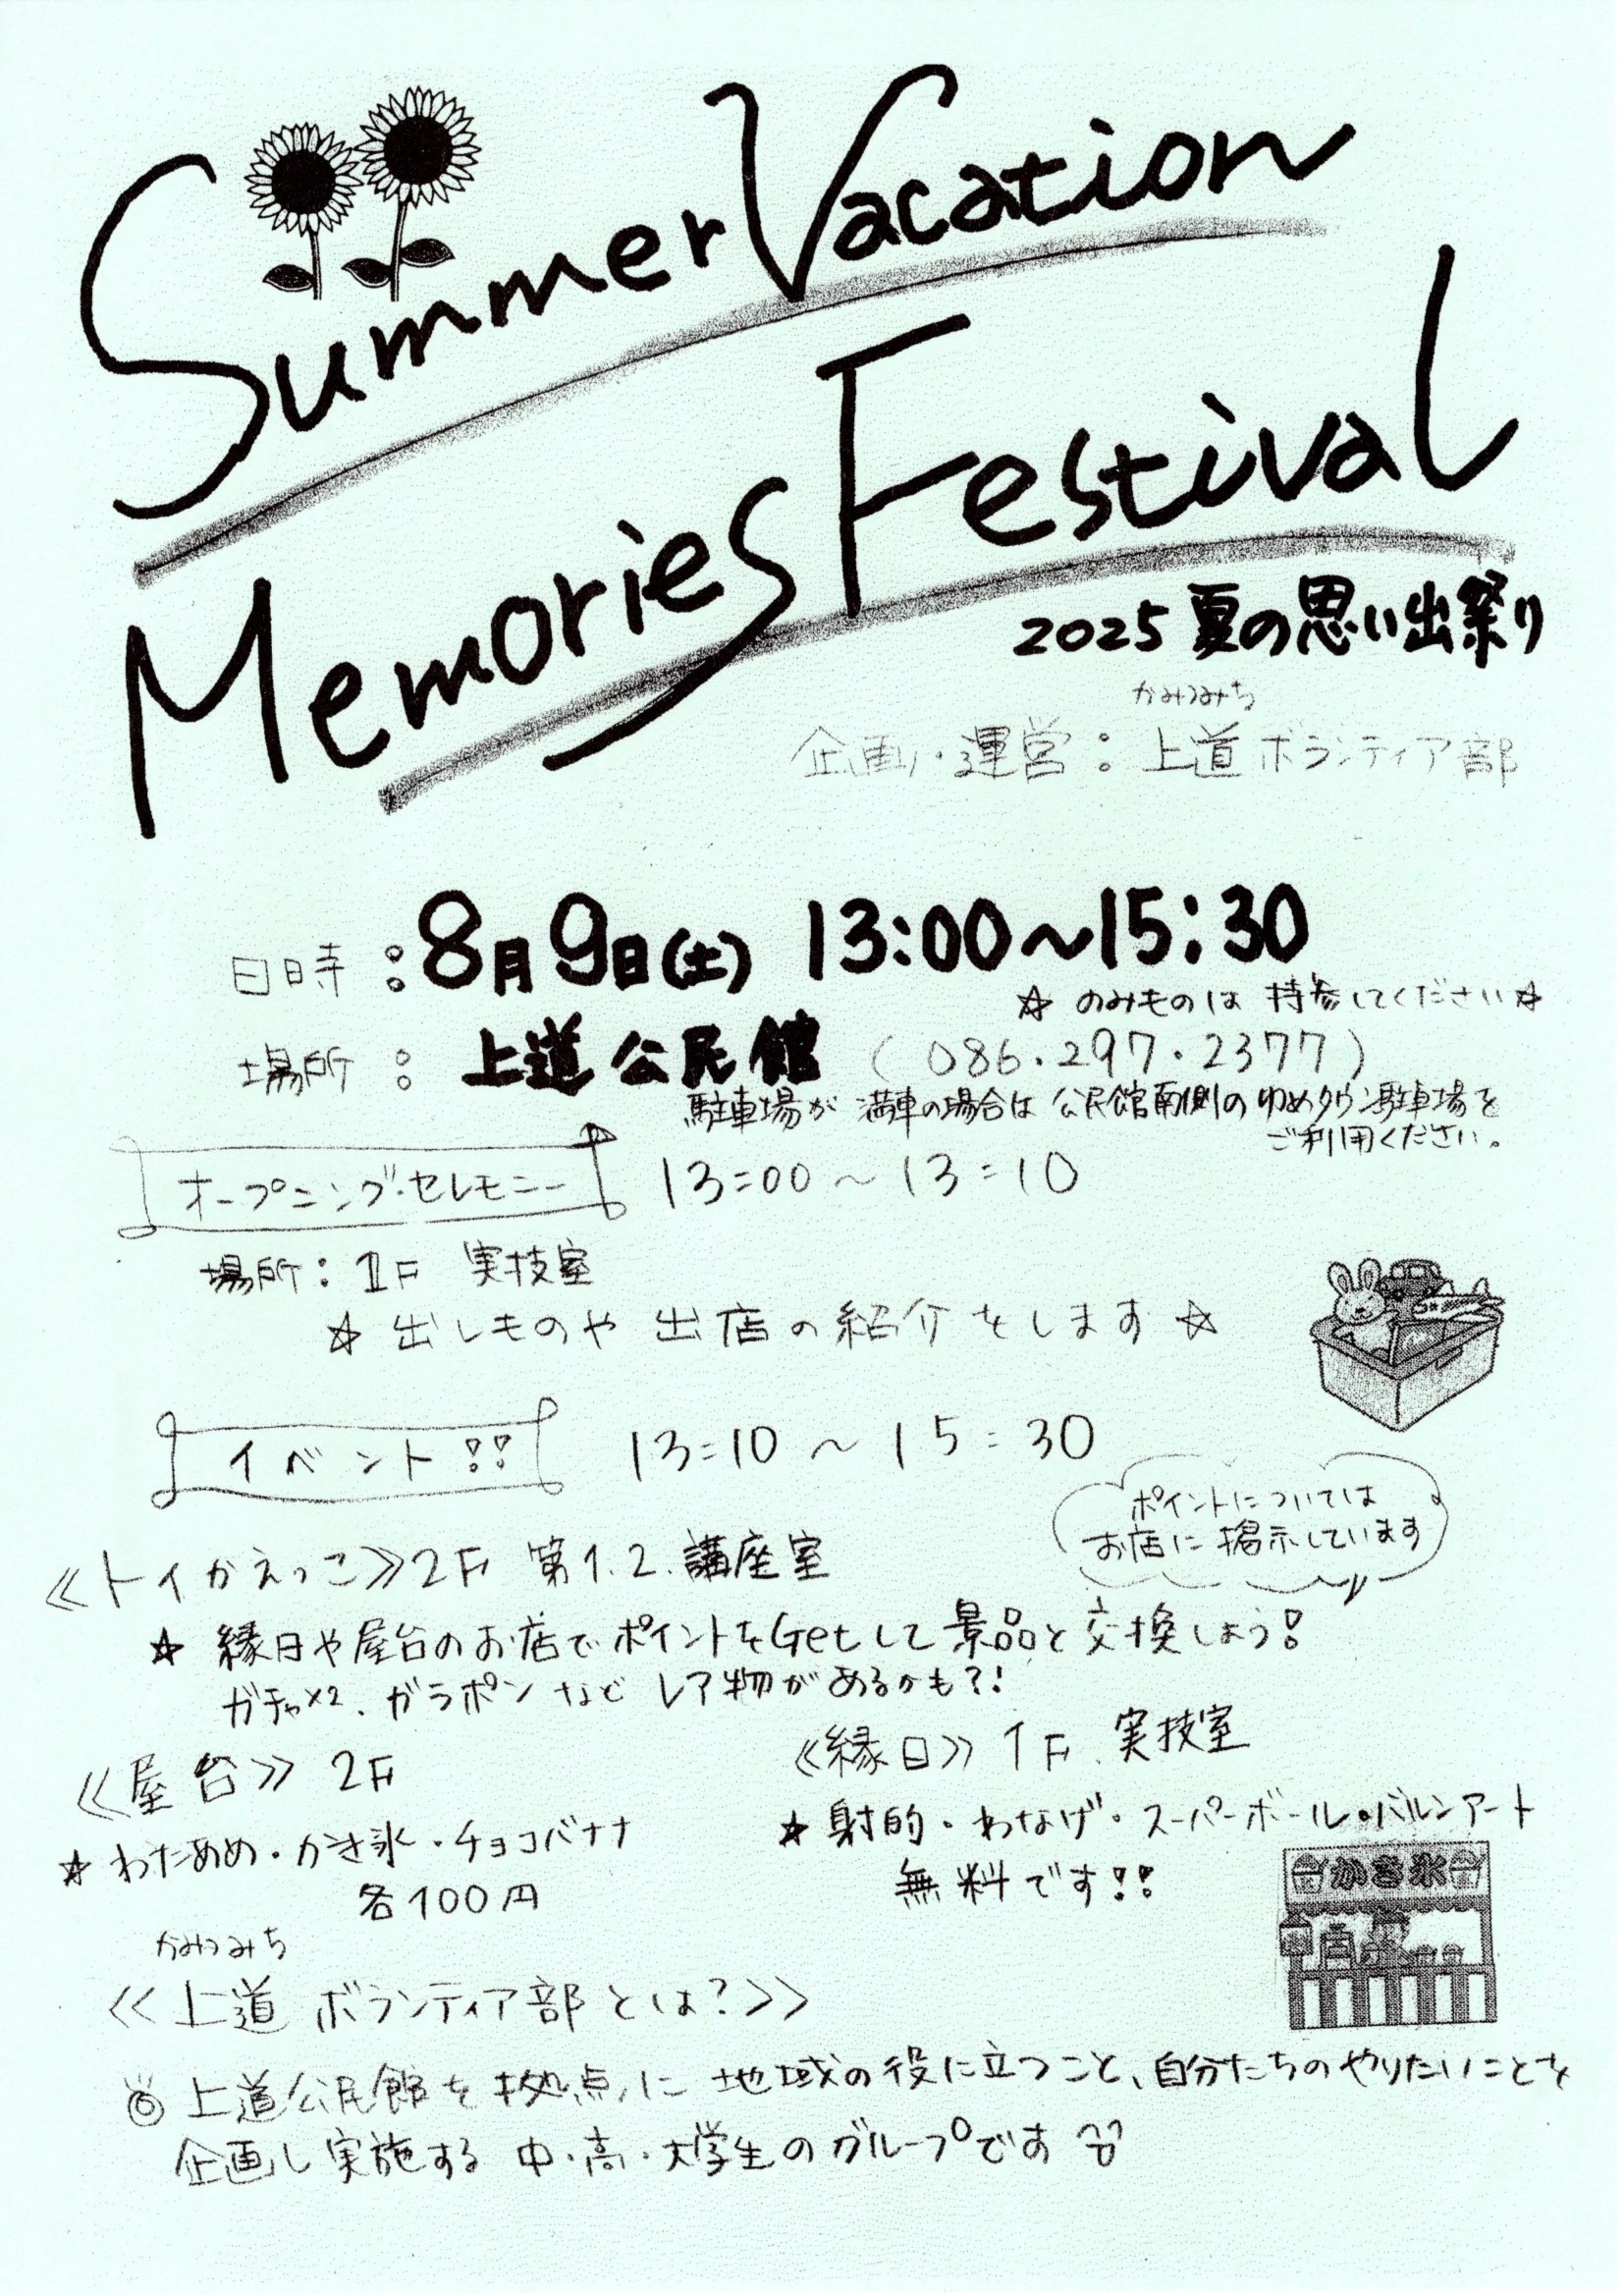 Summer Vacation
Memories Festival
2025 夏の思い出祭り
かみつみち
企画・運営：上道ボランティア部
日時：8月9日(土) 13:00～15:30
☆ のみものは 持参してください☆
場所：上道公民館 (086.297.2377)
駐車場が 満車の場合は 公民館南側の ゆめタウン駐車場を
ご利用ください。
オープニング・セレモニー 13:00～13:10
場所：1F 実技室
☆ 出しものや 出店の紹介をします☆
イベント!! 13:10～15:30
ポイントについては
お店に掲示しています
≪トイかえっこ≫2F 第1.2.講座室
☆ 縁日や屋台のお店でポイントをGetして景品と交換しよう!
ガチャ×2、ガラポンなど レア物があるかも?!
≪屋台≫ 2F
☆わたあめ・かき氷・チョコバナナ
各100円
≪縁日≫ 1F. 実技室
☆射的・わなげ・スーパーボール・バルンアート
無料です!!
かき氷
かみつみち
≪上道 ボランティア部とは?≫
◎上道公民館を拠点に 地域の役に立つこと、自分たちのやりたいことを
企画し実施する 中・高・大学生のグループです